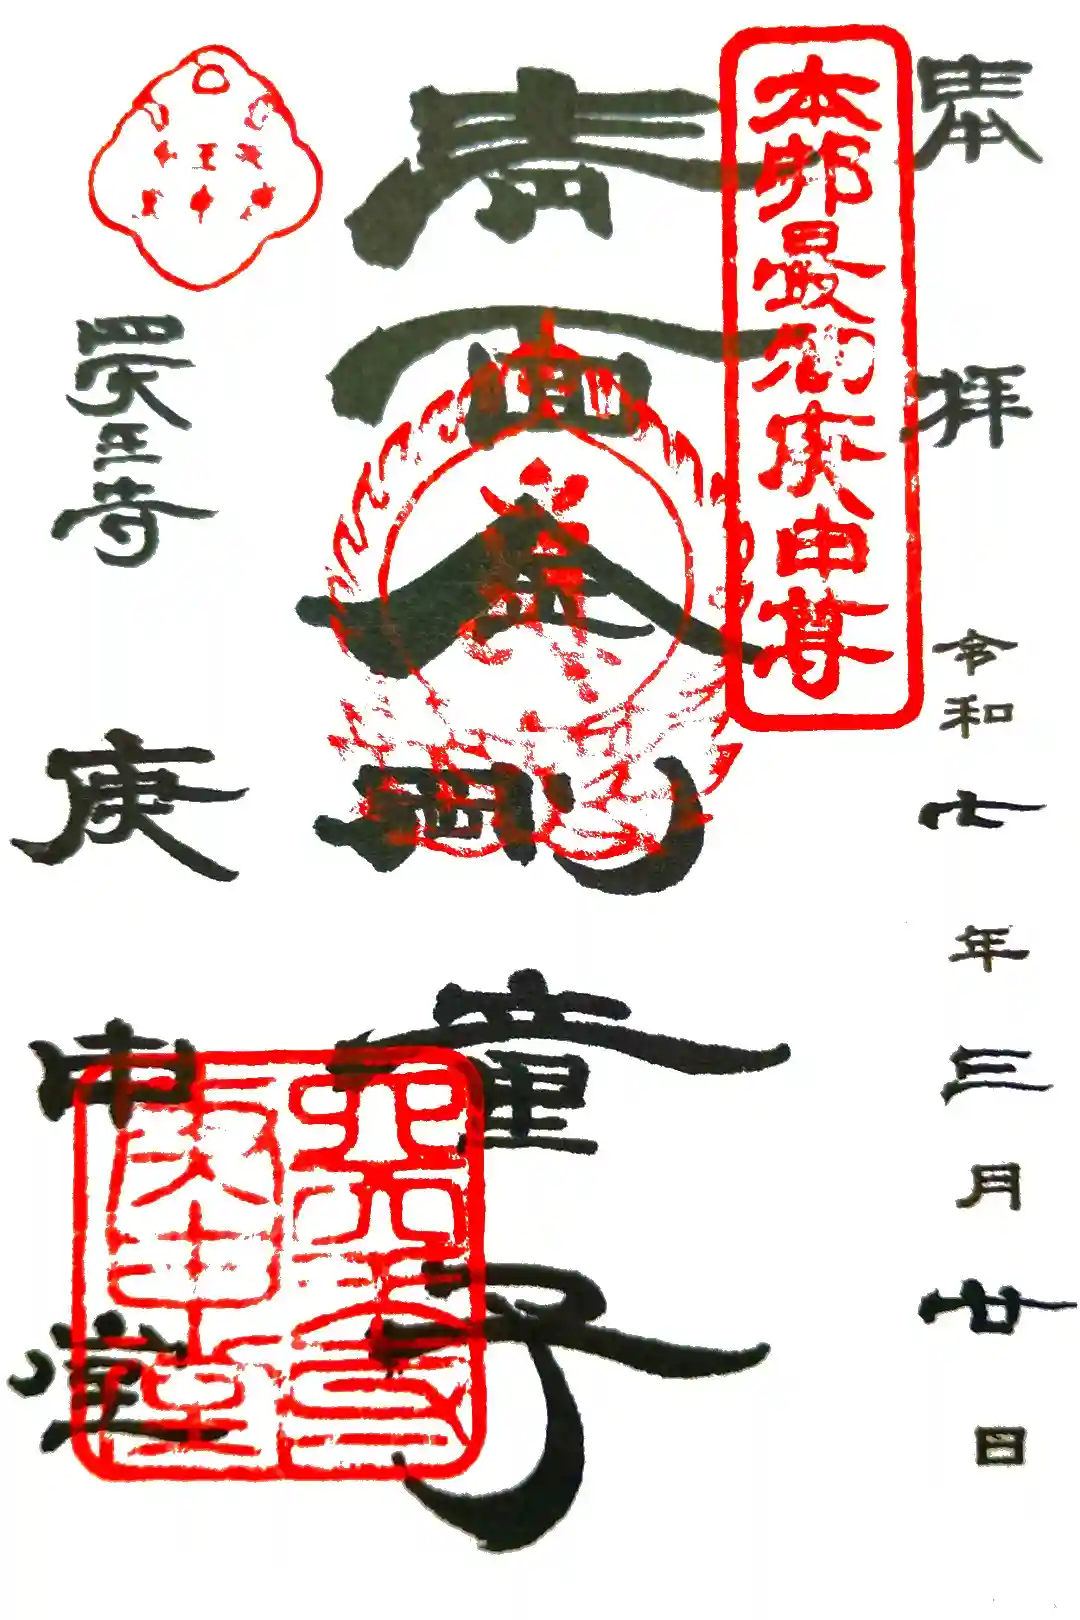 奉拝 令和七年三月廿日
本邦最初庚申尊
青面金剛童子
四天王寺 庚申堂
四天王寺
庚申堂